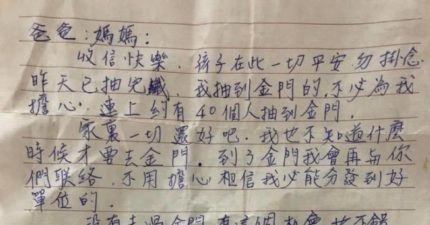 爸爸，媽媽：
收信快樂．孩子在此一切平安勿掛念
昨天已抽完籤，我抽到金門的，不必為我
擔心．連上約有40個人抽到金門．
家裏一切還好吧．我也不知道什麼
時候才要去金門．到了金門我會再与你
們联络．不用擔心相信我必能分發到好
單位的．
沒有去過金門，有這個机會也不錯